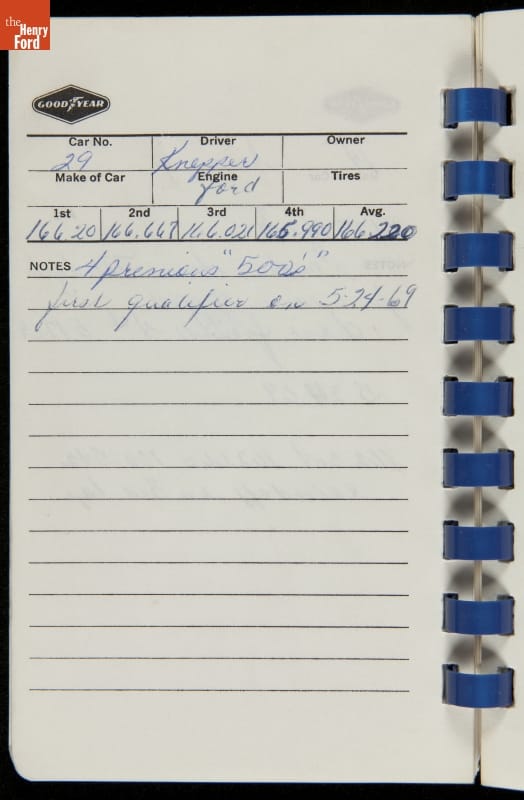 the
Henry
Ford
GOODYEAR
Car No. Driver Owner
29 Knepper
Make of Car Engine Tires
Ford
1st 2nd 3rd 4th Avg.
166.20 166.667 166.021 165.990 166.220
NOTES 4 previous "500s"
first qualifier on 5-24-69